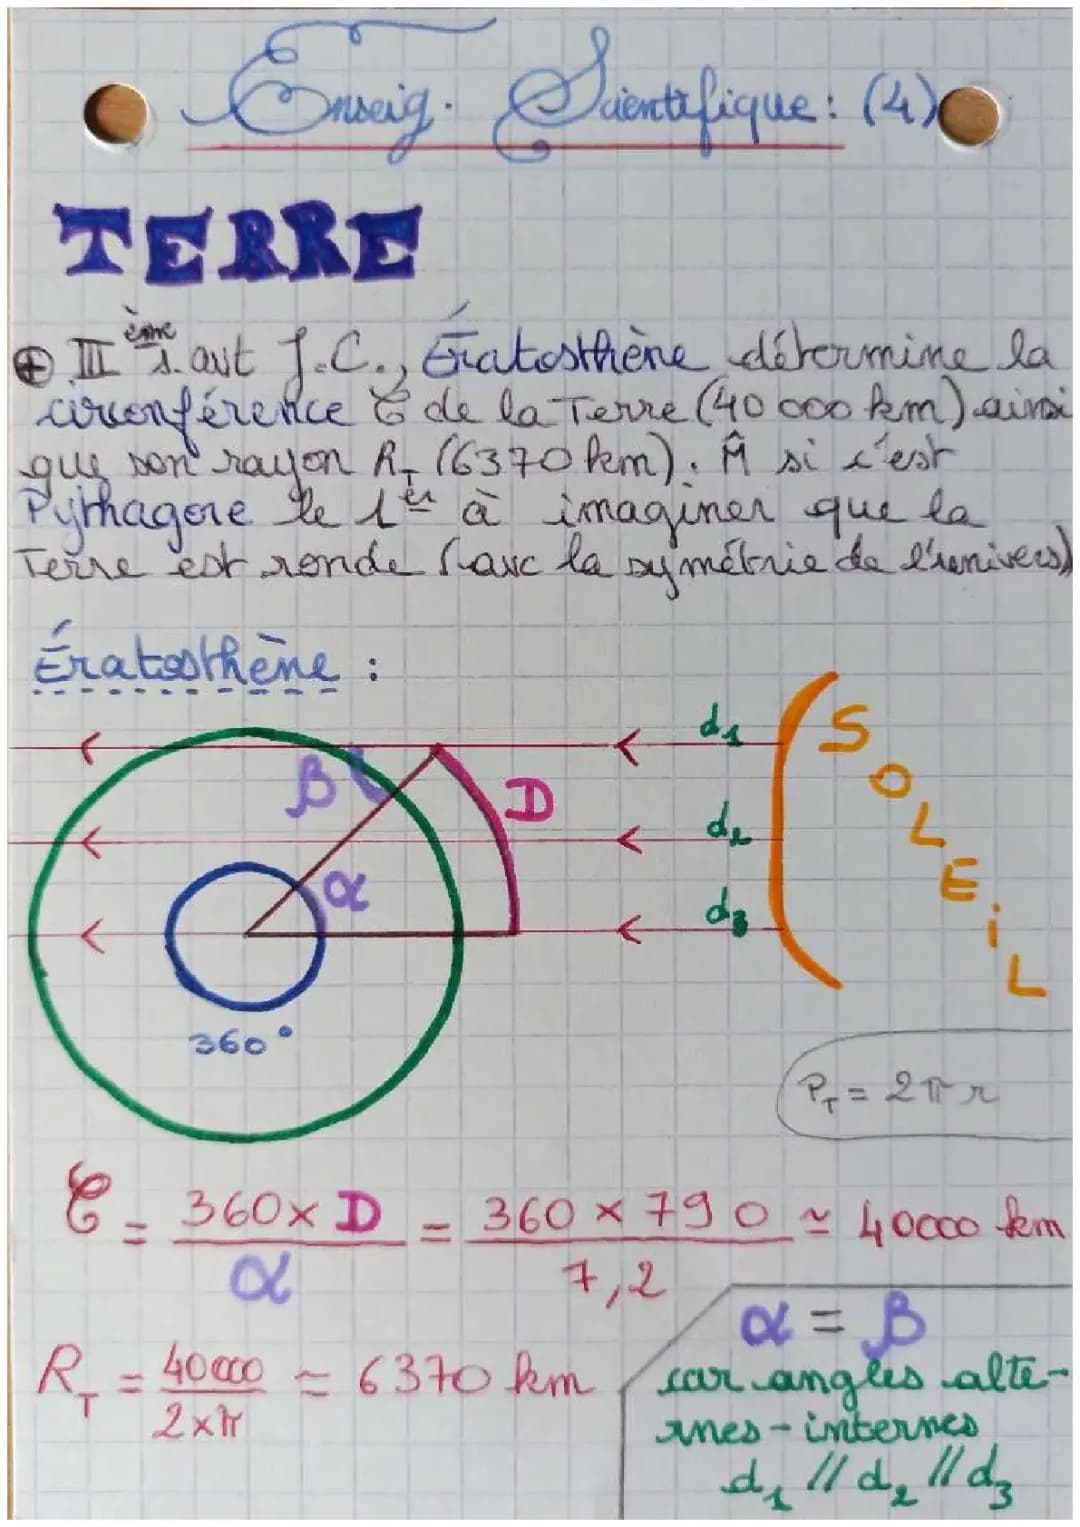 Enseig. Scientifique: (4)
TERRE
⊕ IIIème s. avt J.C., Ératosthène détermine la
circonférence C de la Terre (40 000 km) ainsi
que son rayon R_T (6370 km). M̂ si c'est
Pythagore le 1er à imaginer que la
Terre est ronde (avc la symétrie de l'univers)
Ératosthène :
d₁
SOLEiL
β
D
d₂
α
d₃
360°
P_T = 2πr
C = 360×D/α = 360×790/7,2 ≃ 40000 km
α = β
R_T = 40000/2×π ≃ 6370 km
car angles alte-
rnes-internes
d₁ // d₂ // d₃